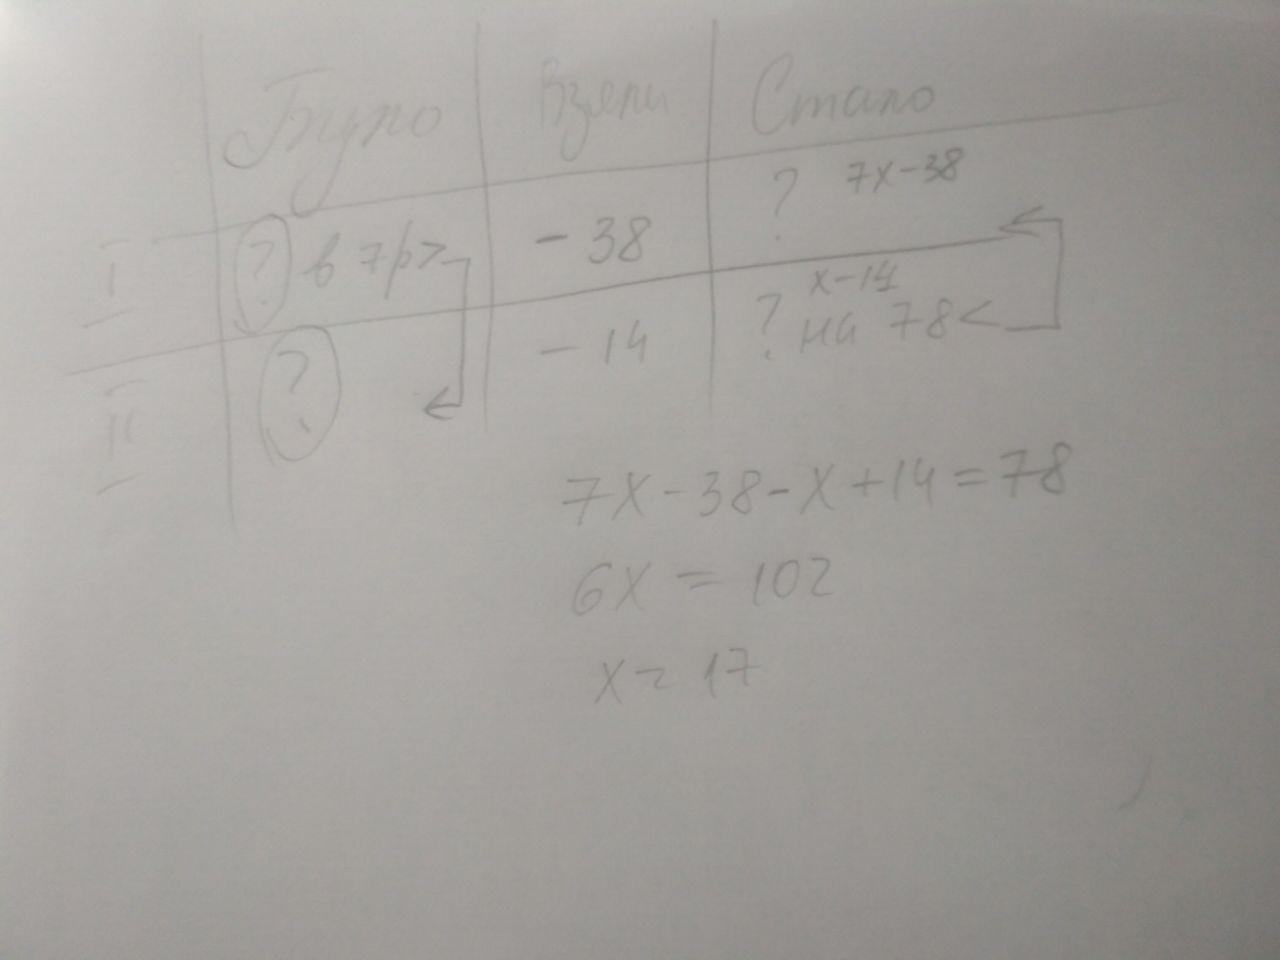 Було Взяли Стало
I ? в 7р> - 38 ? 7x-38
II ? - 14 ? x-14
на 78<
7x-38-x+14=78
6x = 102
x= 17